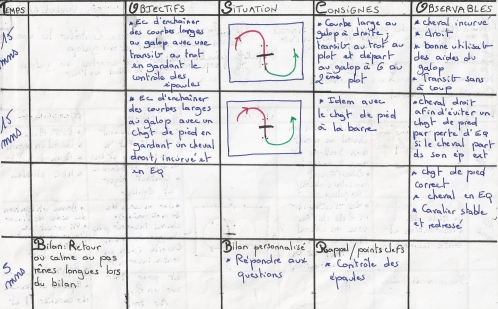 TEMPS
OBJECTIFS
SITUATION
CONSIGNES
OBSERVABLES
15
mns
* Ec d'enchaîner
des courbes larges
au galop avec une
transit° au trot
en gardant le
contrôle des
épaules
* Courbe large au
galop à droite ;
transit° au trot au
plot et départ
au galop à G au
2ème plot
* cheval incurvé
* droit
* bonne utilisat°
des aides du
galop
* Transit° sans
à coup
15
mns
* Ec d'enchaîner
des courbes larges
au galop avec un
chgt de pied en
gardant un cheval
droit, incurvé et
en EQ
* Idem avec
le chgt de pied
à la barre
* cheval droit
afin d'éviter un
chgt de pied
par perte d'EQ
si le cheval part
ds son ép ext
* Chgt de pied
correct
* cheval en EQ
* Cavalier stable
et redressé
5
mns
Bilan: Retour
au calme au pas
rênes longues lors
du bilan
Bilan personnalisé
* Répondre aux
questions
Rappel / points clefs
* Contrôle des
épaules